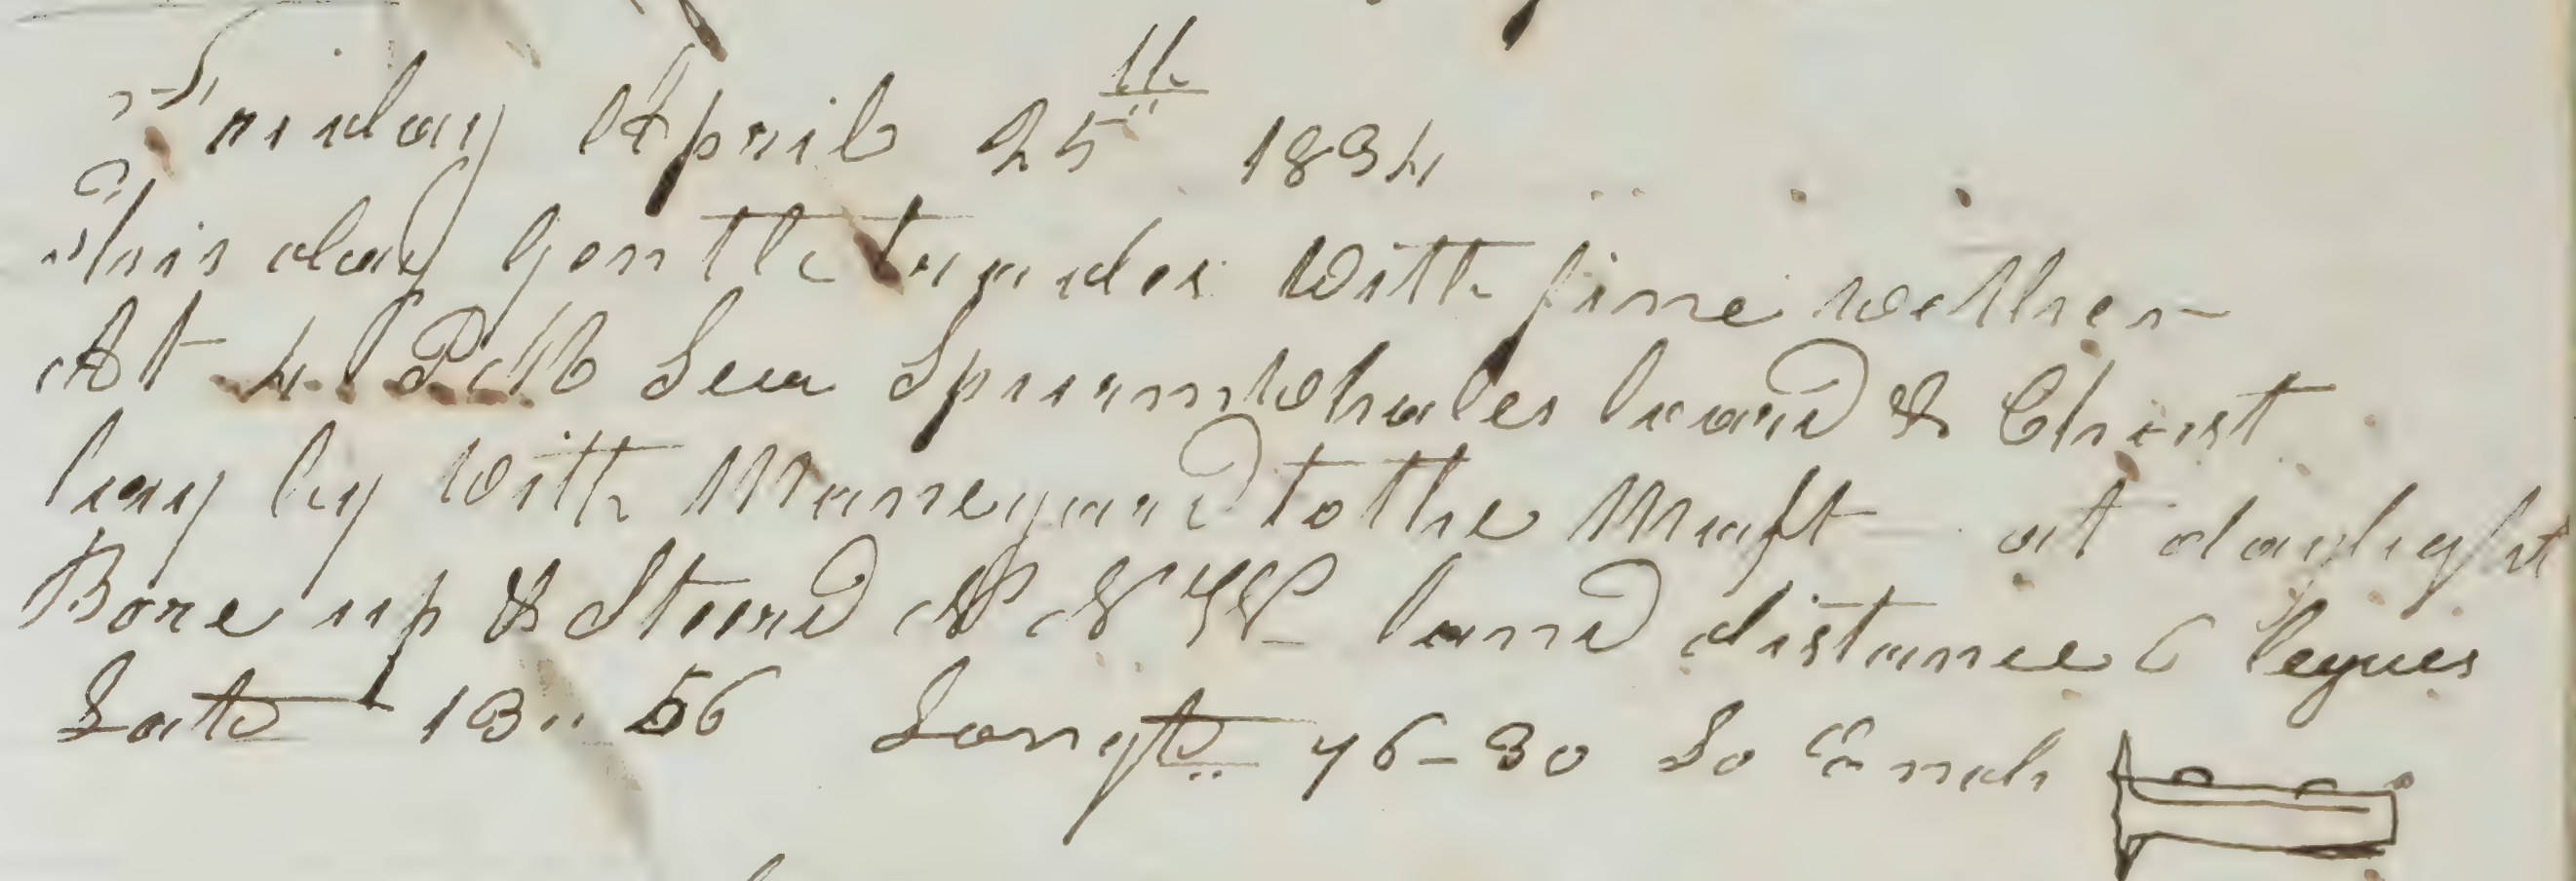 Friday April 25th 1834
This day gentle trades with fine wether
At 4 PM Sea Spurmwhales lowrd & Chast
lay by with Maneyard to the Maft - at daylight
Bore up & Steerd N N W land distance 6 legues
Latd 13" 56 Longtd 76-30 So Ends